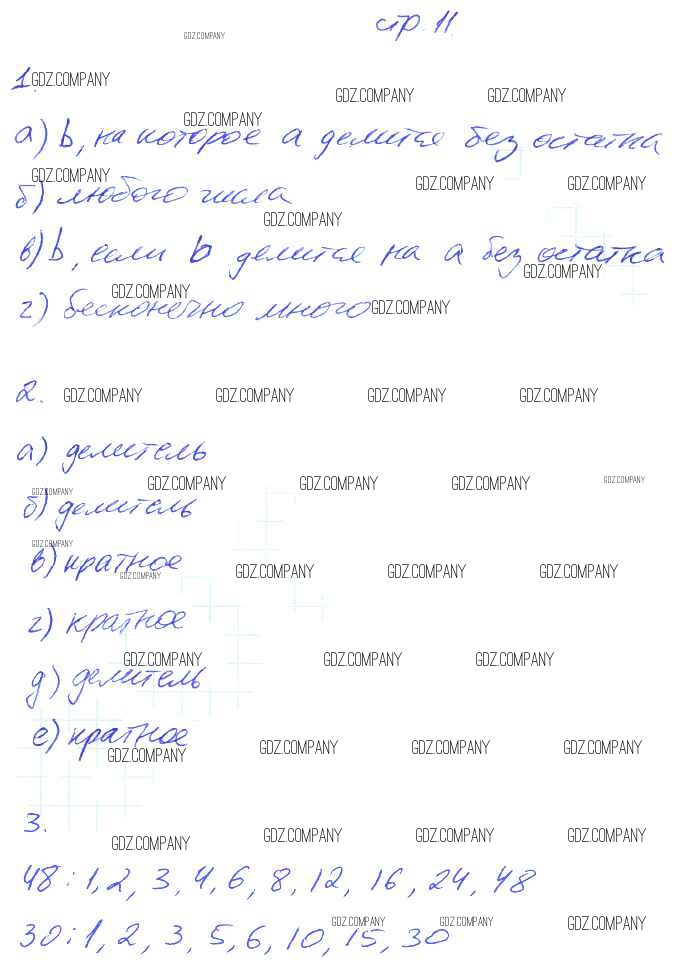 стр. 11.
GDZ.COMPANY
1. GDZ.COMPANY
GDZ.COMPANY GDZ.COMPANY
GDZ.COMPANY
а) b, на которое а делится без остатка
GDZ.COMPANY
GDZ.COMPANY GDZ.COMPANY
б) любого числа
GDZ.COMPANY
в) b, если b делится на а без остатка
GDZ.COMPANY
GDZ.COMPANY
г) бесконечно много GDZ.COMPANY
2. GDZ.COMPANY GDZ.COMPANY GDZ.COMPANY GDZ.COMPANY
а) делитель
GDZ.COMPANY GDZ.COMPANY GDZ.COMPANY GDZ.COMPANY
GDZ.COMPANY
б) делитель
GDZ.COMPANY
в) кратное
GDZ.COMPANY GDZ.COMPANY GDZ.COMPANY GDZ.COMPANY
г) кратное
GDZ.COMPANY GDZ.COMPANY GDZ.COMPANY
д) делитель
е) кратное
GDZ.COMPANY GDZ.COMPANY GDZ.COMPANY GDZ.COMPANY
3.
GDZ.COMPANY GDZ.COMPANY GDZ.COMPANY GDZ.COMPANY
48 : 1, 2, 3, 4, 6, 8, 12, 16, 24, 48
GDZ.COMPANY GDZ.COMPANY GDZ.COMPANY
30 : 1, 2, 3, 5, 6, 10, 15, 30